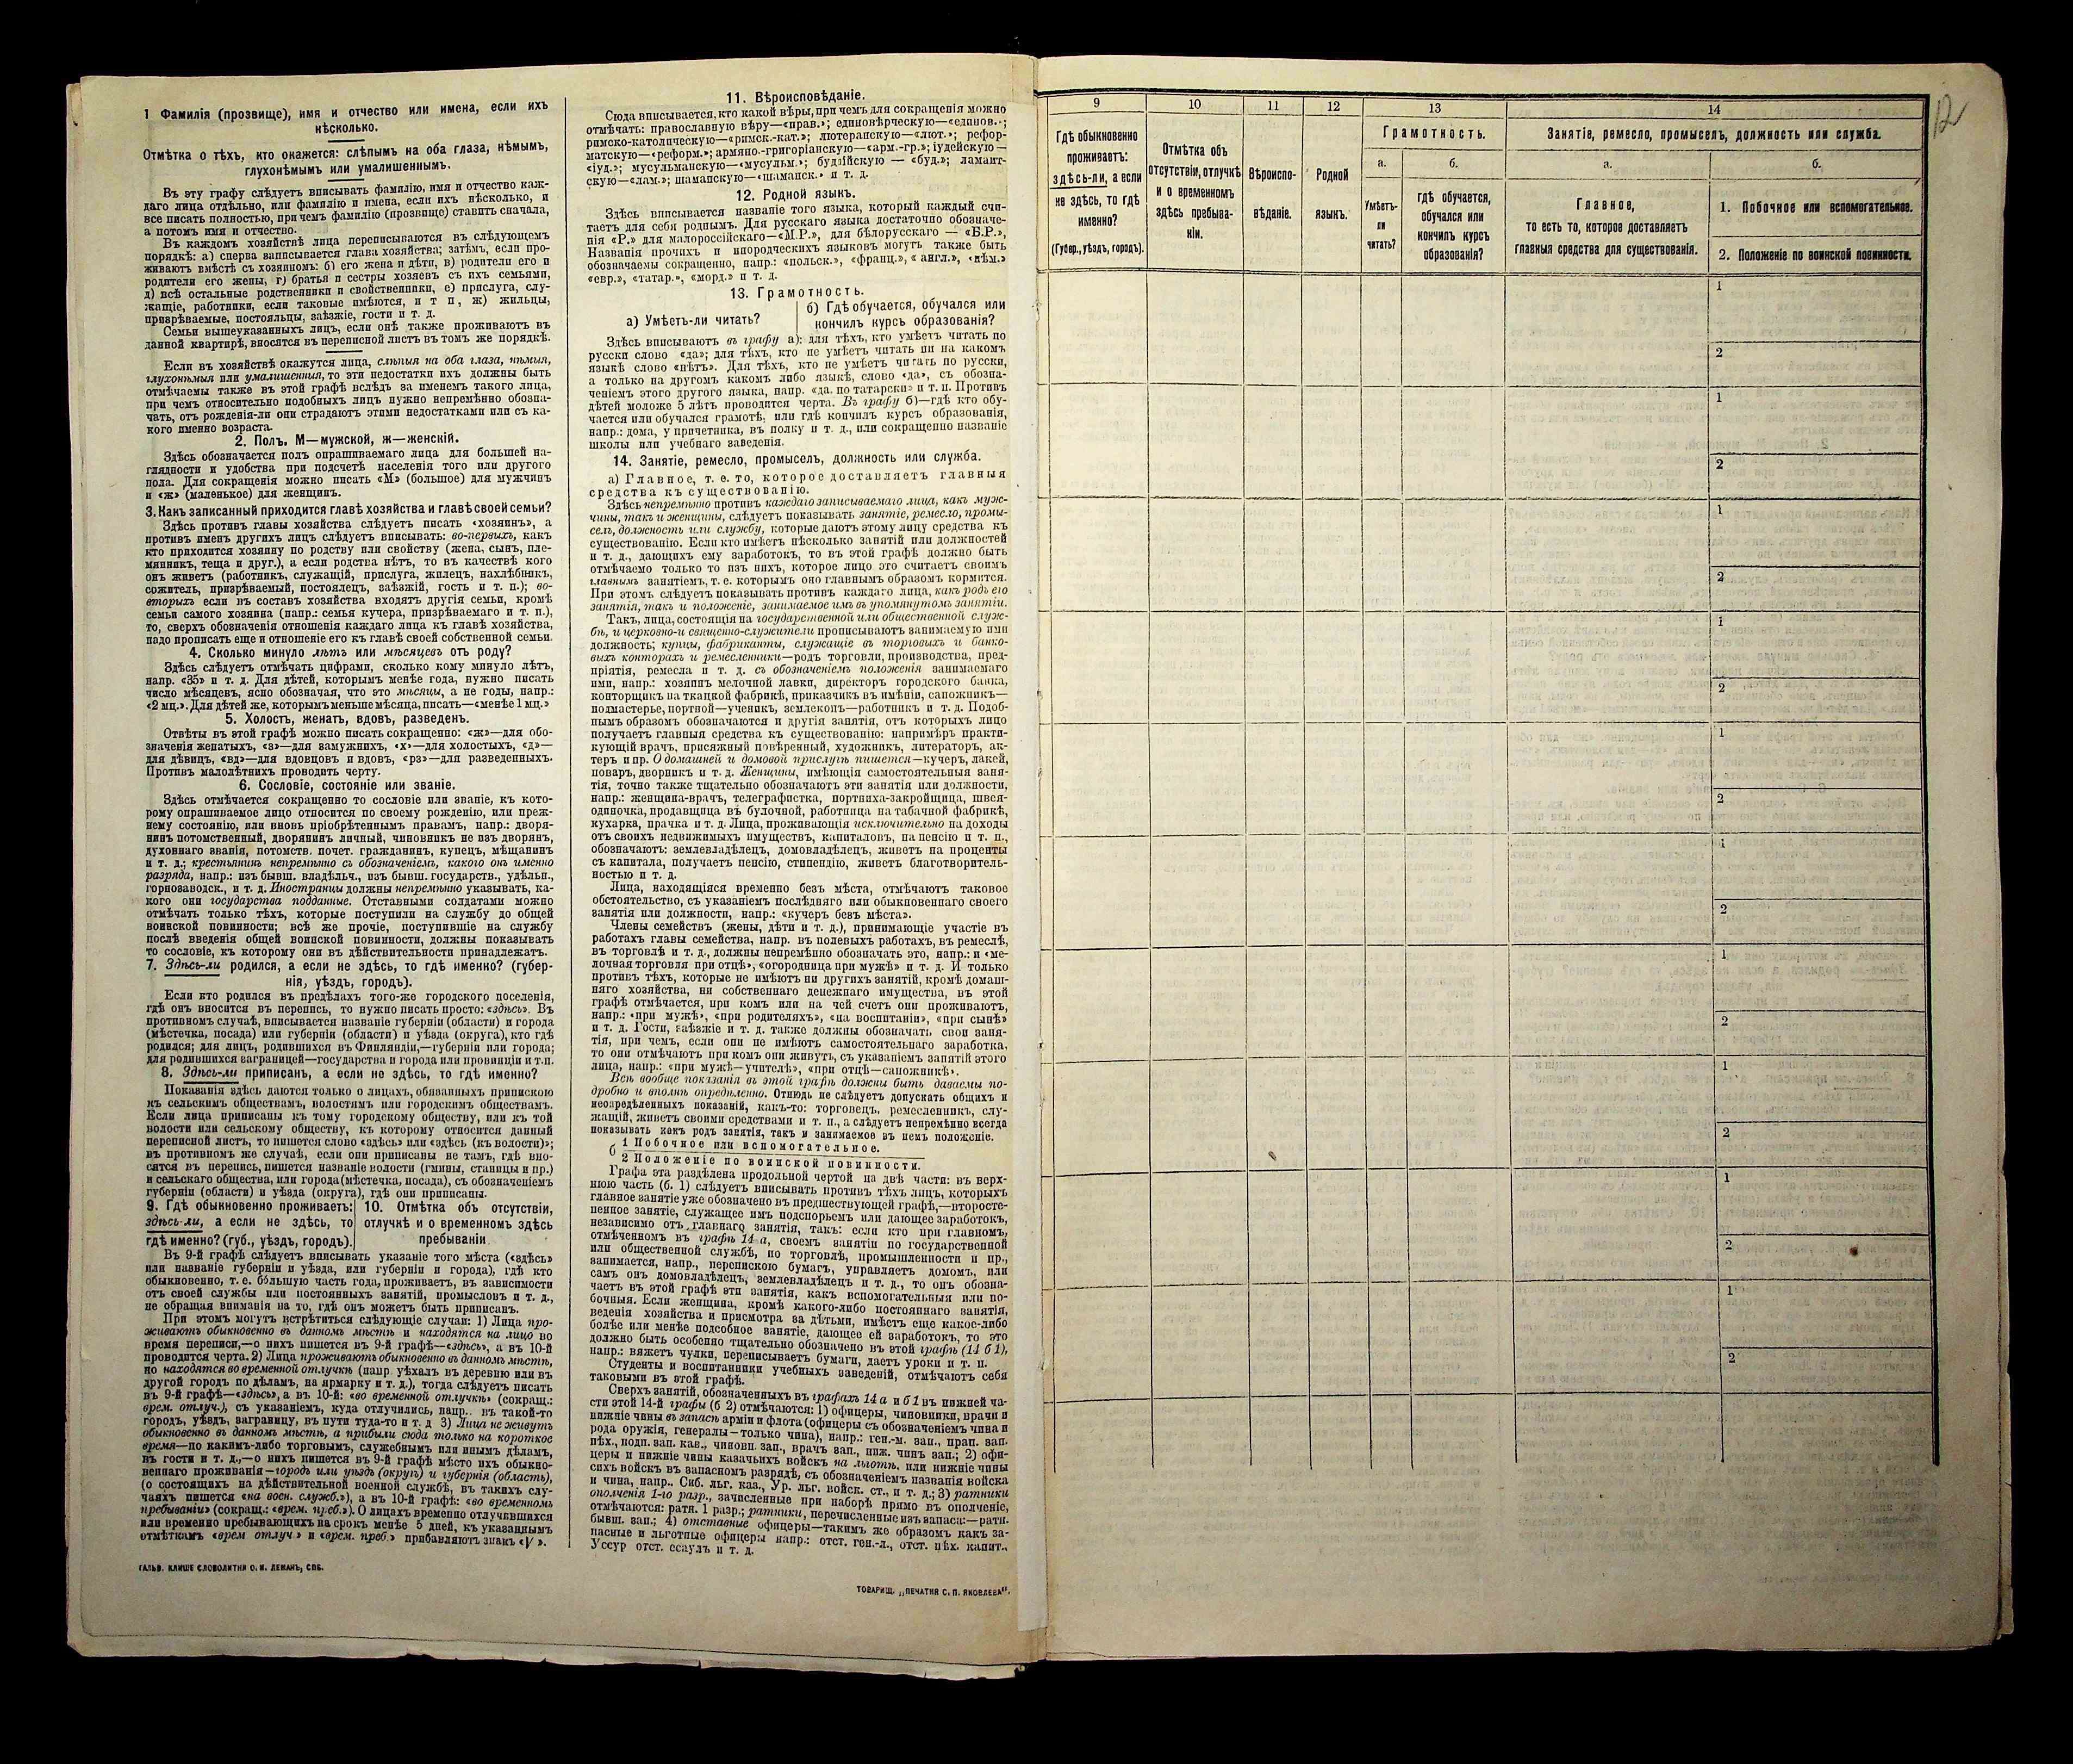 1 Фамилія (прозвище), имя и отчество или имена, если ихъ
нѣсколько.
Отмѣтка о тѣхъ, кто окажется: слѣпымъ на оба глаза, нѣмымъ,
глухонѣмымъ или умалишеннымъ.
Въ эту графу слѣдуетъ вписывать фамилію, имя и отчество каж-
даго лица отдѣльно, или фамилію и имена, если ихъ нѣсколько, и
все писать полностью, при чемъ фамилію (прозвище) ставить сначала,
а потомъ имя и отчество.
Въ каждомъ хозяйствѣ лица переписываются въ слѣдующемъ
порядкѣ: а) сперва вaписывается глава хозяйства; затѣмъ, если про-
живаютъ вмѣстѣ съ хозяиномъ: б) его жена и дѣти, в) родители его и
родители его жены, г) братья и сестры хозяевъ съ ихъ семьями,
д) всѣ остальные родственники и свойственники, е) прислуга, слу-
жащіе, работники, если таковые имѣются, и т п, ж) жильцы,
призрѣваемые, постояльцы, заѣзжіе, гости и т. д.
Семьи вышеуказанныхъ лицъ, если онѣ также проживаютъ въ
данной квартирѣ, вносятся въ переписной листъ въ томъ же порядкѣ.
Если въ хозяйствѣ окажутся лица, слѣпыя на оба глаза, нѣмыя,
глухонѣмыя или умалишенныя, то эти недостатки ихъ должны быть
отмѣчаемы также въ этой графѣ вслѣдъ за именемъ такого лица,
при чемъ относительно подобныхъ лицъ нужно непремѣнно обозна-
чать, отъ рожденія-ли они страдаютъ этими недостатками или съ ка-
кого именно возраста.
2. Полъ. М—мужской, ж—женскій.
Здѣсь обозначается полъ опрашиваемаго лица для большей на-
глядности и удобства при подсчетѣ населенія того или другого
пола. Для сокращенія можно писать «М» (большое) для мужчинъ
и «ж» (маленькое) для женщинъ.
3. Какъ записанный приходится главѣ хозяйства и главѣ своей семьи?
Здѣсь противъ главы хозяйства слѣдуетъ писать «хозяинъ», а
противъ именъ другихъ лицъ слѣдуетъ вписывать: во-первыхъ, какъ
кто приходится хозяину по родству или свойству (жена, сынъ, пле-
мянникъ, теща и друг.), а если родства нѣтъ, то въ качествѣ кого
онъ живетъ (работникъ, служащій, прислуга, жилецъ, нахлѣбникъ,
сожитель, призрѣваемый, постоялецъ, заѣзжій, гость и т. п.); во-
вторыхъ если въ составъ хозяйства входятъ другія семьи, кромѣ
семьи самого хозяина (напр.: семья кучера, призрѣваемаго и т. п.),
то, сверхъ обозначенія отношенія каждаго лица къ главѣ хозяйства,
надо прописать еще и отношеніе его къ главѣ своей собственной семьи.
4. Сколько минуло лѣтъ или мѣсяцевъ отъ роду?
Здѣсь слѣдуетъ отмѣчать цифрами, сколько кому минуло лѣтъ,
напр. «35» и т. д. Для дѣтей, которымъ менѣе года, нужно писать
число мѣсяцевъ, ясно обозначая, что это мѣсяцы, а не годы, напр.:
«2 мц.». Для дѣтей же, которымъ меньше мѣсяца, писать—«менѣе 1 мц.»
5. Холостъ, женатъ, вдовъ, разведенъ.
Отвѣты въ этой графѣ можно писать сокращенно: «ж»—для обо-
значенія женатыхъ, «з»—для замужнихъ, «х»—для холостыхъ, «д»—
для дѣвицъ, «вд»—для вдовцовъ и вдовъ, «рз»—для разведенныхъ.
Противъ малолѣтнихъ проводить черту.
6. Сословіе, состояніе или званіе.
Здѣсь отмѣчается сокращенно то сословіе или званіе, къ кото-
рому опрашиваемое лицо относится по своему рожденію, или преж-
нему состоянію, или вновь пріобрѣтеннымъ правамъ, напр.: дворя-
нинъ потомственный, дворянинъ личный, чиновникъ не изъ дворянъ,
духовнаго званія, потомств. почет. гражданинъ, купецъ, мѣщанинъ
и т. д.; крестьянинъ непремѣнно съ обозначеніемъ, какого онъ именно
разряда, напр.: изъ бывш. владѣльч., изъ бывш. государств., удѣльн.,
горнозаводск., и т. д. Иностранцы должны непремѣнно указывать, ка-
кого они государства подданные. Отставными солдатами можно
отмѣчать только тѣхъ, которые поступили на службу до общей
воинской повинности; всѣ же прочіе, поступившіе на службу
послѣ введенія общей воинской повинности, должны показывать
то сословіе, къ которому они въ дѣйствительности принадлежатъ.
7. Здѣсь-ли родился, а если не здѣсь, то гдѣ именно? (губер-
нія, уѣздъ, городъ).
Если кто родился въ предѣлахъ того-же городского поселенія,
гдѣ онъ вносится въ перепись, то нужно писать просто: «здѣсь». Въ
противномъ случаѣ, вписывается названіе губерніи (области) и города
(мѣстечка, посада) или губерніи (области) и уѣзда (округа), кто гдѣ
родился; для лицъ, родившихся въ Финляндіи,—губерніи или города;
для родившихся заграницей—государства и города или провинціи и т.п.
8. Здѣсь-ли приписанъ, а если не здѣсь, то гдѣ именно?
Показанія здѣсь даются только о лицахъ, обязанныхъ припискою
къ сельскимъ обществамъ, волостямъ или городскимъ обществамъ.
Если лица приписаны къ тому городскому обществу, или къ той
волости или сельскому обществу, къ которому относится данный
переписной листъ, то пишется слово «здѣсь» или «здѣсь (къ волости)»;
въ противномъ же случаѣ, если они приписаны не тамъ, гдѣ вно-
сятся въ перепись, пишется названіе волости (гмины, станицы и пр.)
и сельскаго общества, или города (мѣстечка, посада), съ обозначеніемъ
губерніи (области) и уѣзда (округа), гдѣ они приписаны.
9. Гдѣ обыкновенно проживаетъ:
здѣсь-ли, а если не здѣсь, то
гдѣ именно? (губ., уѣздъ, городъ).
10. Отмѣтка объ отсутствіи,
отлучкѣ и о временномъ здѣсь
пребываніи.
Въ 9-й графѣ слѣдуетъ вписывать указаніе того мѣста («здѣсь»
или названіе губерніи и уѣзда, или губерніи и города), гдѣ кто
обыкновенно, т. е. бо́льшую часть года, проживаетъ, въ зависимости
отъ своей службы или постоянныхъ занятій, промысловъ и т. д.,
не обращая вниманія на то, гдѣ онъ можетъ быть приписанъ.
При этомъ могутъ встрѣтиться слѣдующіе случаи: 1) Лица про-
живаютъ обыкновенно въ данномъ мѣстѣ и находятся на лицо во
время переписи,—о нихъ пишется въ 9-й графѣ—«здѣсь», а въ 10-й
проводится черта. 2) Лица проживаютъ обыкновенно въ данномъ мѣстѣ,
но находятся во временной отлучкѣ (напр уѣхалъ въ деревню или въ
другой городъ по дѣламъ, на ярмарку и т. д.), тогда слѣдуетъ писать
въ 9-й графѣ—«здѣсь», а въ 10-й: «во временной отлучкѣ» (сокращ.:
врем. отлуч.), съ указаніемъ, куда отлучились, напр.. въ такой-то
городъ, уѣздъ, заграницу, въ пути туда-то и т. д 3) Лица не живутъ
обыкновенно въ данномъ мѣстѣ, а прибыли сюда только на короткое
время—по какимъ-либо торговымъ, служебнымъ или инымъ дѣламъ,
въ гости и т. д.,—о нихъ пишется въ 9-й графѣ мѣсто ихъ обыкно-
веннаго проживанія—городъ или уѣздъ (округъ) и губернія (область),
(о состоящихъ на дѣйствительной военной службѣ, въ такихъ слу-
чаяхъ пишется «на воен. служб.»), а въ 10-й графѣ: «во временномъ
пребываніи» (сокращ.: «врем. преб.»). О лицахъ временно отлучившихся
или временно пребывающихъ на срокъ менѣе 5 дней, къ указаннымъ
отмѣткамъ «врем отлуч» и «врем. преб.» прибавляютъ знакъ «V».
ГАЛЬВ. КЛИШЕ СЛОВОЛИТНИ О. И. ЛЕМАНЪ, СПБ.
11. Вѣроисповѣданіе.
Сюда вписывается, кто какой вѣры, при чемъ для сокращенія можно
отмѣчать: православную вѣру—«прав.»; единовѣрческую—«единов.»;
римско-католическую—«римск.-кат.»; лютеранскую—«лют.»; рефор-
матскую—«реформ.»; армяно.-григоріанскую—«арм.-гр.»; іудейскую—
«іуд.»; мусульманскую—«мусульм.»; буддійскую — «буд.»; ламант-
скую—«лам.»; шаманскую—«шаманск.» и т. д.
12. Родной языкъ.
Здѣсь вписывается названіе того языка, который каждый счи-
таетъ для себя роднымъ. Для русскаго языка достаточно обозначе-
нія «Р.» для малороссійскаго—«М.Р.», для бѣлорусскаго — «Б.Р.»,
Названія прочихъ и инородческихъ языковъ могутъ также быть
обозначаемы сокращенно, напр.: «польск.», «франц.», «англ.», «нѣм.»
«евр.», «татар.», «морд.» и т. д.
13. Грамотность.
а) Умѣетъ-ли читать?
б) Гдѣ обучается, обучался или
кончилъ курсъ образованія?
Здѣсь вписываютъ въ графу а): для тѣхъ, кто умѣетъ читать по
русски слово «да»; для тѣхъ, кто не умѣетъ читать ни на какомъ
языкѣ слово «нѣтъ». Для тѣхъ, кто не умѣетъ читать по русски,
а только на другомъ какомъ либо языкѣ, слово «да», съ обозна-
ченіемъ этого другого языка, напр. «да. по татарски» и т. п. Противъ
дѣтей моложе 5 лѣтъ проводится черта. Въ графу б)—гдѣ кто обу-
чается или обучался грамотѣ, или гдѣ кончилъ курсъ образованія,
напр.: дома, у причетника, въ полку и т. д., или сокращенно названіе
школы или учебнаго заведенія.
14. Занятіе, ремесло, промыселъ, должность или служба.
а) Главное, т. е. то, которое доставляетъ главныя
средства къ существованію.
Здѣсь непремѣнно противъ каждаго записываемаго лица, какъ муж-
чины, такъ и женщины, слѣдуетъ показывать занятіе, ремесло, промы-
селъ, должность или службу, которые даютъ этому лицу средства къ
существованію. Если кто имѣетъ нѣсколько занятій или должностей
и т. д., дающихъ ему заработокъ, то въ этой графѣ должно быть
отмѣчаемо только то изъ нихъ, которое лицо это считаетъ своимъ
главнымъ занятіемъ, т. е. которымъ оно главнымъ образомъ кормится.
При этомъ слѣдуетъ показывать противъ каждаго лица, какъ родъ его
занятія, такъ и положеніе, занимаемое имъ въ упомянутомъ занятіи.
Такъ, лица, состоящія на государственной или общественной служ-
бѣ, и церковно-и священно-служители прописываютъ занимаемую ими
должность; купцы, фабриканты, служащіе въ торговыхъ и банко-
выхъ конторахъ и ремесленники—родъ торговли, производства, пред-
пріятія, ремесла и т. д. съ обозначеніемъ положенія занимаемаго
ими, напр.: хозяинъ мелочной лавки, директоръ городского банка,
конторщикъ на ткацкой фабрикѣ, приказчикъ въ имѣніи, сапожникъ—
подмастерье, портной—ученикъ, землекопъ—работникъ и т. д. Подоб-
нымъ образомъ обозначаются и другія занятія, отъ которыхъ лицо
получаетъ главныя средства къ существованію: напримѣръ практи-
кующій врачъ, присяжный повѣренный, художникъ, литераторъ, ак-
теръ и пр. О домашней и домовой прислугѣ пишется—кучеръ, лакей,
поваръ, дворникъ и т. д. Женщины, имѣющія самостоятельныя заня-
тія, точно также тщательно обозначаютъ эти занятія или должности,
напр.: женщина-врачъ, телеграфистка, портниха-закройщица, швея-
одиночка, продавщица въ булочной, работница на табачной фабрикѣ,
кухарка, прачка и т. д. Лица, проживающія исключительно на доходы
отъ своихъ недвижимыхъ имуществъ, капиталовъ, на пенсію и т. п.,
обозначаютъ: землевладѣлецъ, домовладѣлецъ, живетъ на проценты
съ капитала, получаетъ пенсію, стипендію, живетъ благотворитель-
ностью и т. д.
Лица, находящіяся временно безъ мѣста, отмѣчаютъ таковое
обстоятельство, съ указаніемъ послѣдняго или обыкновеннаго своего
занятія или должности, напр.: «кучеръ безъ мѣста».
Члены семействъ (жены, дѣти и т. д.), принимающіе участіе въ
работахъ главы семейства, напр. въ полевыхъ работахъ, въ ремеслѣ,
въ торговлѣ и т. д., должны непремѣнно обозначать это, напр.: и «ме-
лочная торговля при отцѣ», «огородница при мужѣ» и т. д. И только
противъ тѣхъ, которые не имѣютъ ни другихъ занятій, кромѣ домаш-
няго хозяйства, ни собственнаго денежнаго имущества, въ этой
графѣ отмѣчается, при комъ или на чей счетъ они проживаютъ,
напр.: «при мужѣ», «при родителяхъ», «на воспитаніи», «при сынѣ»
и т. д. Гости, заѣзжіе и т. д. также должны обозначать свои заня-
тія, при чемъ, если они не имѣютъ самостоятельнаго заработка,
то они отмѣчаютъ при комъ они живутъ, съ указаніемъ занятій этого
лица, напр.: «при мужѣ—учителѣ», «при отцѣ—сапожникѣ».
Всѣ вообще показанія въ этой графѣ должны быть даваемы по-
дробно и вполнѣ опредѣленно. Отнюдь не слѣдуетъ допускать общихъ и
неопредѣленныхъ показаній, какъ-то: торговецъ, ремесленникъ, слу-
жащій, живетъ своими средствами и т. п., а слѣдуетъ непремѣнно всегда
показывать какъ родъ занятія, такъ и занимаемое въ немъ положеніе.
б 1 Побочное или вспомогательное.
2 Положеніе по воинской повинности.
Графа эта раздѣлена продольной чертой на двѣ части: въ верх-
нюю часть (б. 1) слѣдуетъ вписывать противъ тѣхъ лицъ, которыхъ
главное занятіе уже обозначено въ предшествующей графѣ,—второсте-
пенное занятіе, служащее имъ подспорьемъ или дающее заработокъ,
независимо отъ главнаго занятія, такъ: если кто при главномъ,
отмѣченномъ въ графѣ 14 а, своемъ занятіи по государственной
или общественной службѣ, по торговлѣ, промышленности и пр.,
занимается, напр., перепискою бумагъ, управляетъ домомъ, или
самъ онъ домовладѣлецъ, землевладѣлецъ и т. д., то онъ обозна-
чаетъ въ этой графѣ эти занятія, какъ вспомогательныя или по-
бочныя. Если женщина, кромѣ какого-либо постояннаго занятія,
веденія хозяйства и присмотра за дѣтьми, имѣетъ еще какое-либо
болѣе или менѣе подсобное занятіе, дающее ей заработокъ, то это
должно быть особенно тщательно обозначено въ этой графѣ (14 б 1),
напр.: вяжетъ чулки, переписываетъ бумаги, даетъ уроки и т. п.
Студенты и воспитанники учебныхъ заведеній, отмѣчаютъ себя
таковыми въ этой графѣ.
Сверхъ занятій, обозначенныхъ въ графахъ 14 а и б 1 въ нижней ча-
сти этой 14-й графы (б 2) отмѣчаются: 1) офицеры, чиновники, врачи и
нижніе чины въ запасѣ арміи и флота (офицеры съ обозначеніемъ чина и
рода оружія, генералы—только чина), напр.: ген.-м. зап., прап. зап.
пѣх., подп. зап. кав., чиновн. зап., врачъ зап., ниж. чинъ зап.; 2) офи-
церы и нижніе чины казачьихъ войскъ на льготѣ. или нижніе чины
сихъ войскъ въ запасномъ разрядѣ, съ обозначеніемъ названія войска
и чина, напр.. Сиб. льг. каз., Ур. льг. войск. ст., и т. д.; 3) ратники
ополченія 1-го разр., зачисленные при наборѣ прямо въ ополченіе,
отмѣчаются: ратн. 1 разр.; ратники, перечисленные изъ запаса:—ратн.
бывш. зап.; 4) отставные офицеры—такимъ же образомъ какъ за-
пасные и льготные офицеры напр.: отст. ген.-л., отст. пѣх. капит.,
Уссур отст. есаулъ и т. д.
ТОВАРИЩ. „ПЕЧАТНЯ С. П. ЯКОВЛЕВА“.
12
9
10
11
12
13
14
Гдѣ обыкновенно
проживаетъ:
здѣсь-ли, а если
не здѣсь, то гдѣ
именно?
(Губер., уѣздъ, городъ).
Отмѣтка объ
отсутствіи, отлучкѣ
и о временномъ
здѣсь пребыва-
ніи.
Вѣроиспо-
вѣданіе.
Родной
языкъ.
Грамотность.
а.
б.
Умѣетъ-
ли
читать?
гдѣ обучается,
обучался или
кончилъ курсъ
образованія?
Занятіе, ремесло, промыселъ, должность или служба.
а.
б.
Главное,
то есть то, которое доставляетъ
главныя средства для существованія.
1. Побочное или вспомогательное.
2. Положеніе по воинской повинности.
1
2
1
2
1
2
1
2
1
2
1
2
1
2
1
2
1
2
1
2